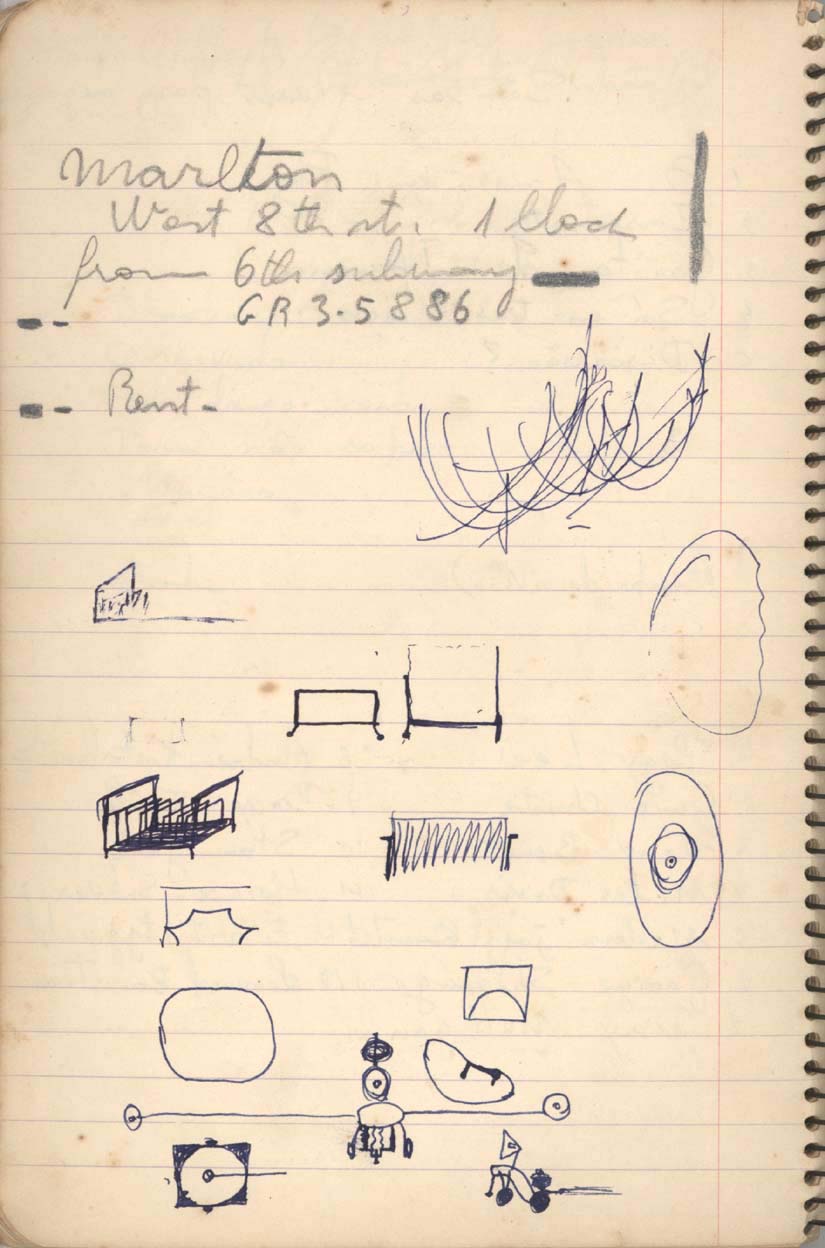 Marlton
West 8th st. 1 block
from 6th subway
GR 3-5886
Rent-